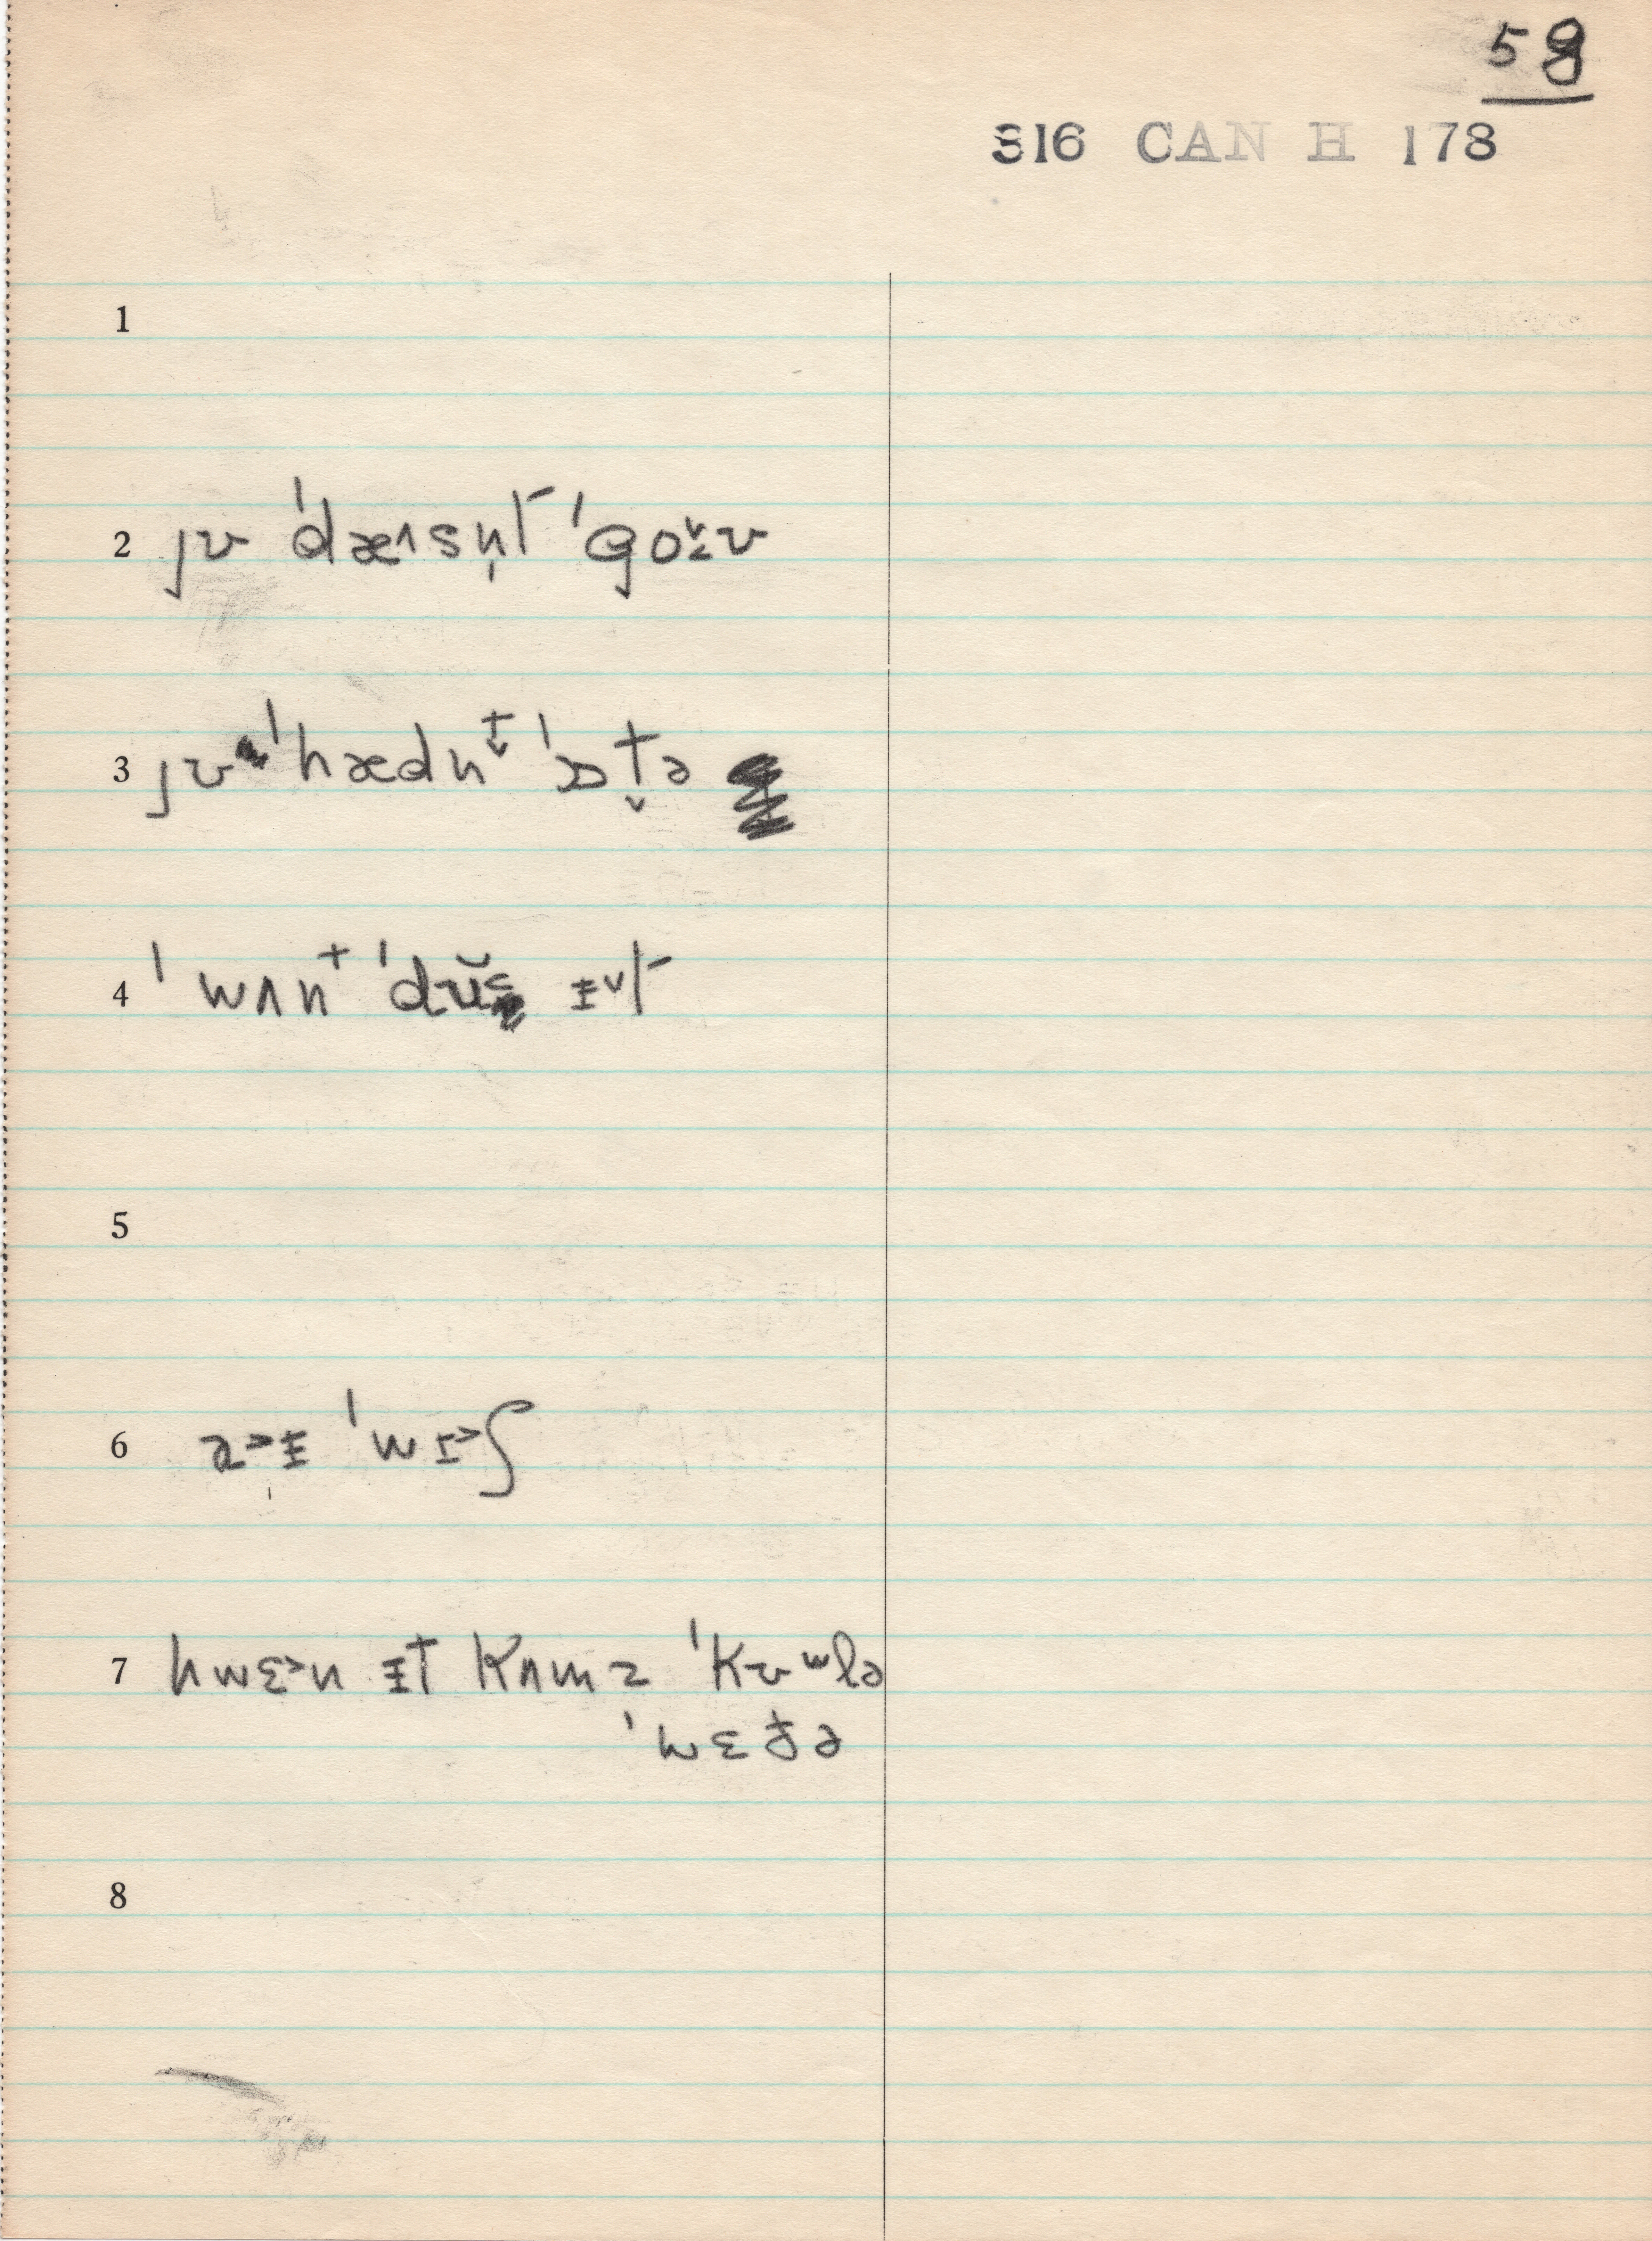 58
S16 CAN H 178
1
2 jʊ ˈdæɪsn̩t ˈgoʊ
3 jʊ ˈhædnt̬ ˈɔt̬ə
4 ˈwʌnt ˈdʊ ɨt
5
6 aɨ ˈwɪʃ
7 hwɛn ɨt kʌmz ˈkʊʷlə
ˈwɛðə
8